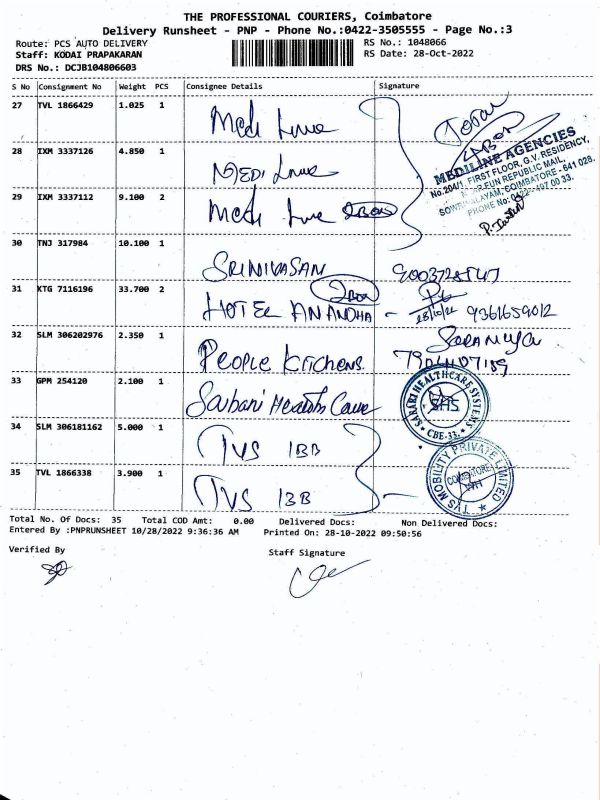 THE PROFESSIONAL COURIERS, Coimbatore
Delivery Runsheet - PNP - Phone No.:0422-3505555 - Page No.:3
Route: PCS AUTO DELIVERY RS No.: 1048066
Staff: KODAI PRAPAKARAN RS Date: 28-Oct-2022
DRS No.: DCJB104806603
S No Consignment No Weight PCS Consignee Details Signature
27 TVL 1866429 1.025 1 Medi Line
28 IXM 3337126 4.850 1 MEDI Line
29 IXM 3337112 9.100 2 Medi Line 2Box
MEDILINE AGENCIES
No.204/1, FIRST FLOOR, G.V. RESIDENCY,
REPUBLIC MAIL,
COIMBATORE - 641 028.
30 TNJ 317984 10.100 1 SRINIVASAN
31 KTG 7116196 33.700 2 HOTEL ANANDHA 2Box 28/10/22 9361659012
32 SLM 306202976 2.350 1 People Kitchens
33 GPM 254120 2.100 1 Saibani Health Care
SARABI HEALTHCARE SYSTEMS
SHS
CBE-33
34 SLM 306181162 5.000 1 TVS IBB
35 TVL 1866338 3.900 1 TVS IBB
TVS MOBILITY PRIVATE LIMITED
COIMBATORE
Total No. Of Docs: 35 Total COD Amt: 0.00 Delivered Docs: Non Delivered Docs:
Entered By :PNPRUNSHEET 10/28/2022 9:36:36 AM Printed On: 28-10-2022 09:50:56
Verified By Staff Signature